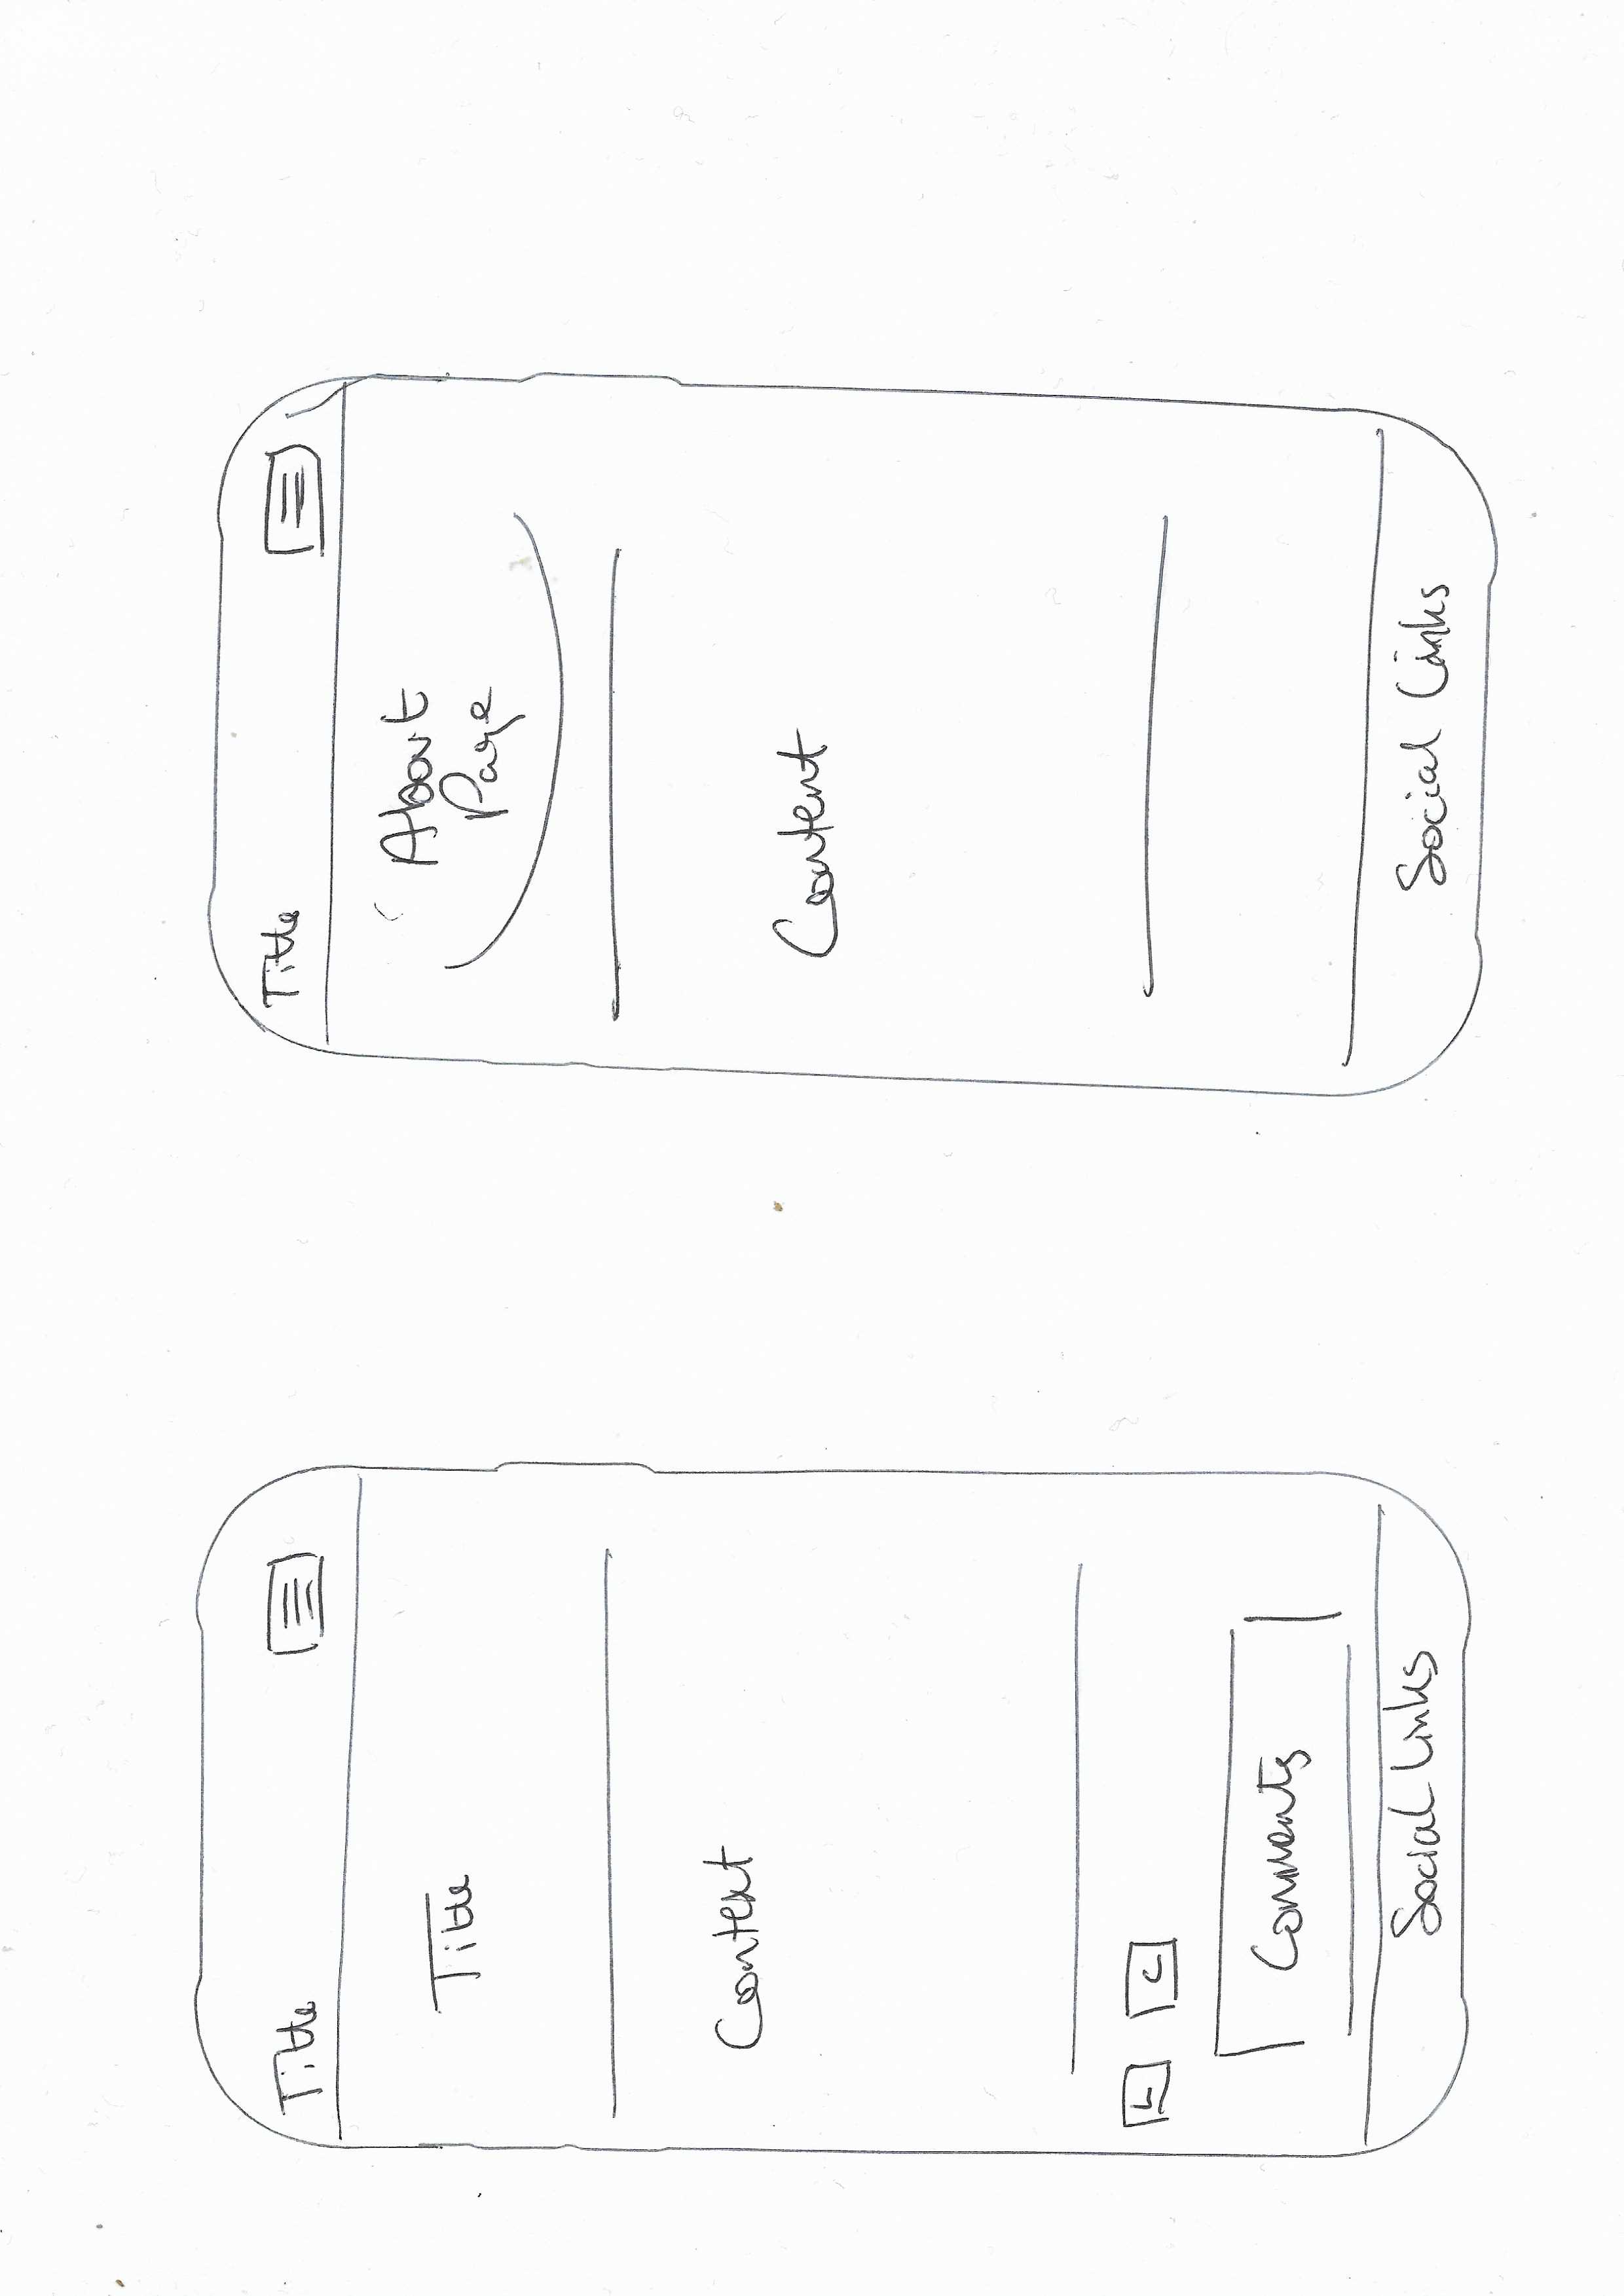 Title
Title
Content
L C
Comments
Social Links
Title
About
Page
Content
Social Links